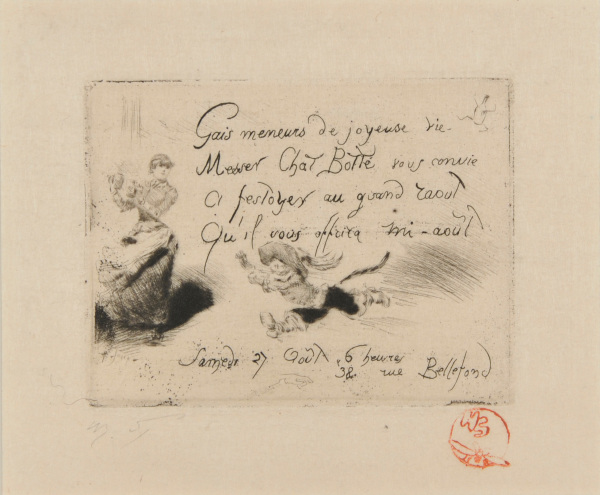 Gais meneurs de joyeuse vie.
Messer Chat Botté vous convie
A festoyer au grand raout
Qu'il vous offrira mi-août
Samedi 27 Août 6 heures
38 rue Bellefond